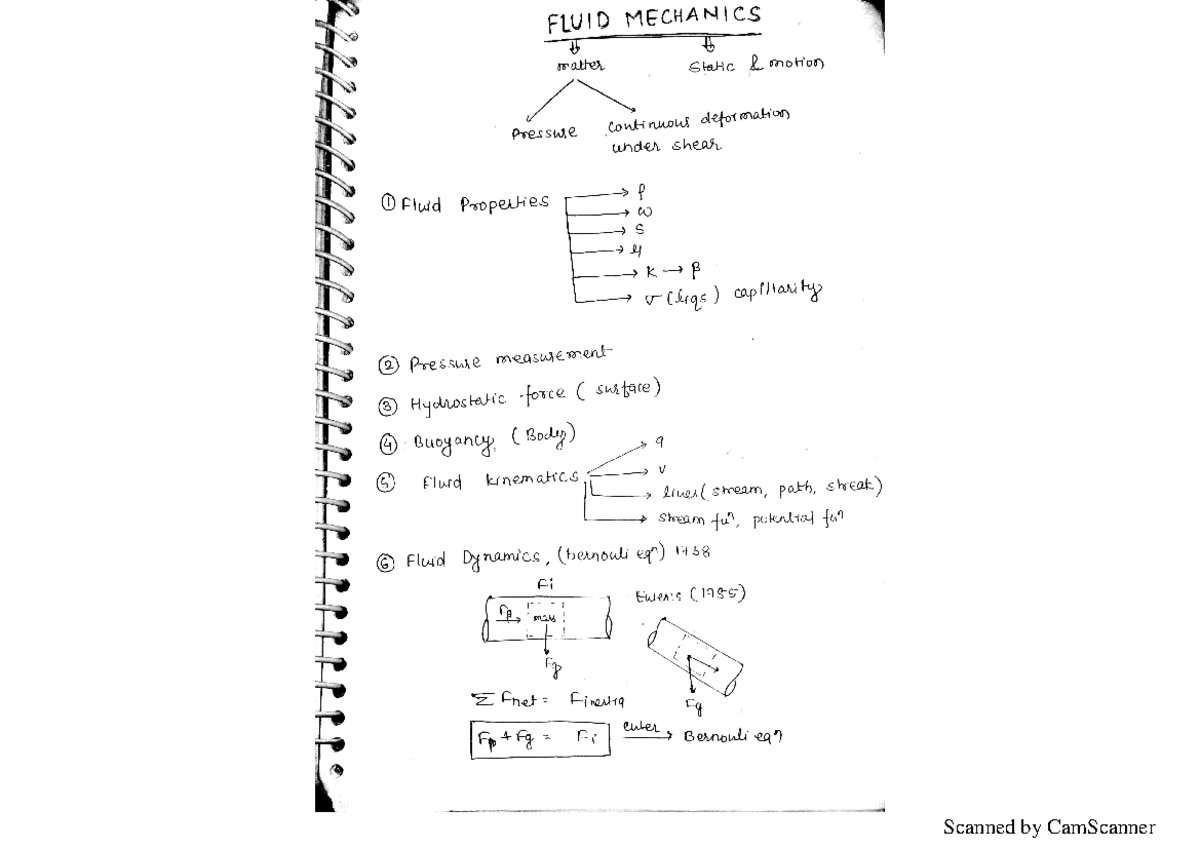 FLUID MECHANICS
matter Static & motion
Pressure continuous deformation
under shear
① Fluid Properties → ρ
→ ω
→ S
→ μ
→ K → β
→ σ (liqs) capillarity
② Pressure measurement
③ Hydrostatic force (surface)
④ Buoyancy, (Body)
⑤ Fluid kinematics → a
→ v
→ lines (stream, path, streak)
→ stream fuⁿ, potential fuⁿ
⑥ Fluid Dynamics, (bernouli eqⁿ) 1738
Fi
Euler's (1755)
Fp mass
Fg
Σ Fnet = Finertia
Fg
Fp + Fg = Fi euler → Bernouli eqⁿ
Scanned by CamScanner